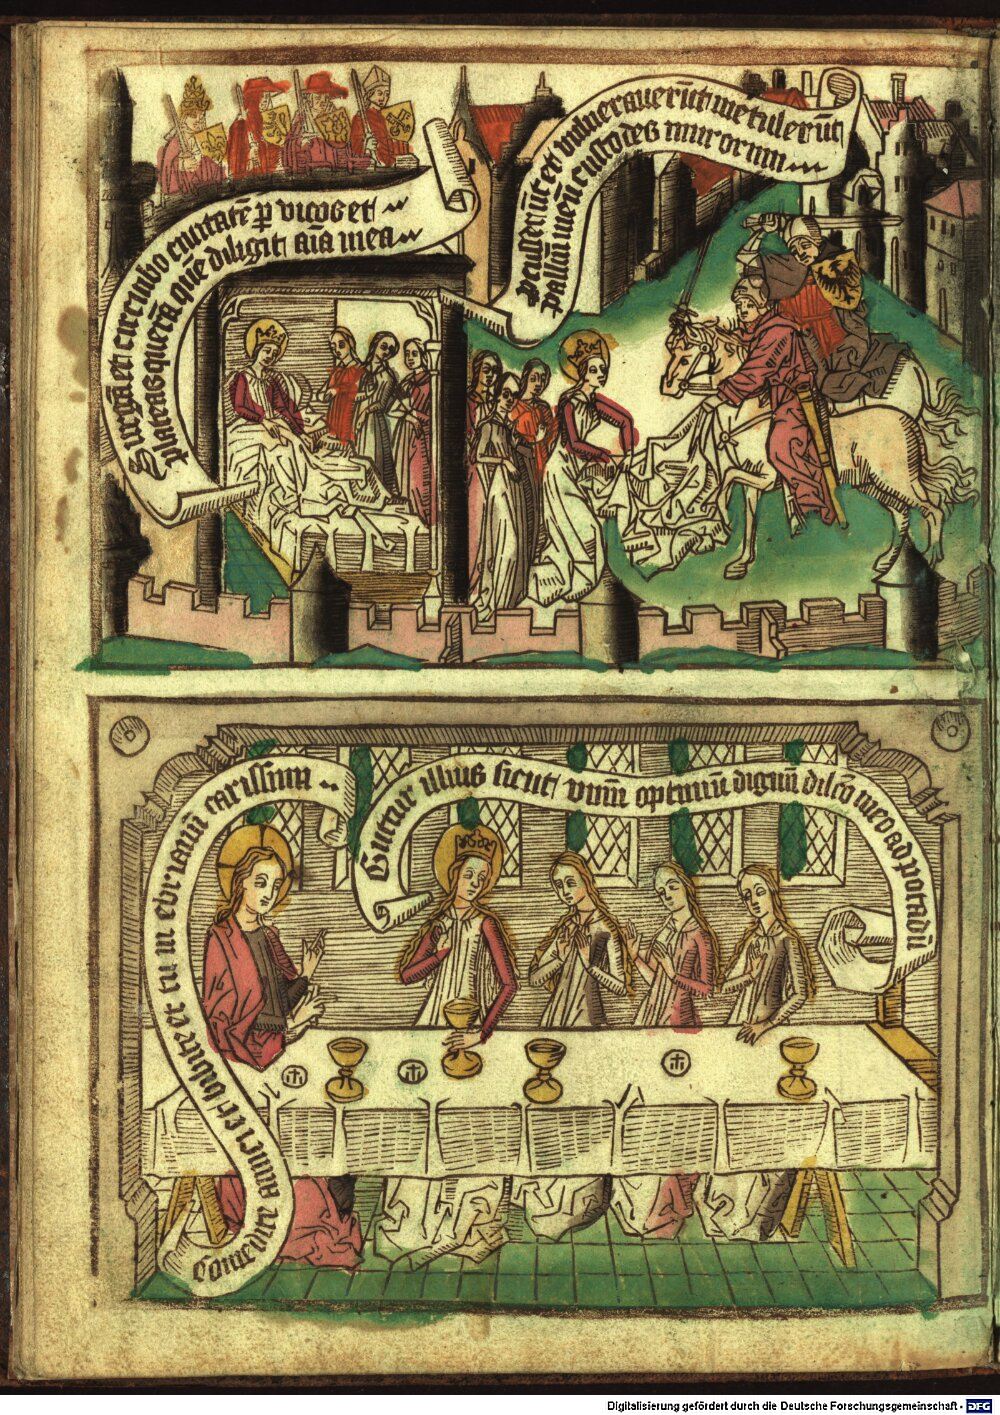 Surgā et circuībo ciuitatē ꝑ vicos et
plateas querā quē diligit aīa mea
percusserūt et vulnerauerūt me tulerūt
palliū meū custodes murorum
Comedite amici et bibite et inebriamī carissimi
Guttur illius sicut vinū optimū dignū dilc̄o meo ad potādū
Digitalisierung gefördert durch die Deutsche Forschungsgemeinschaft - DFG